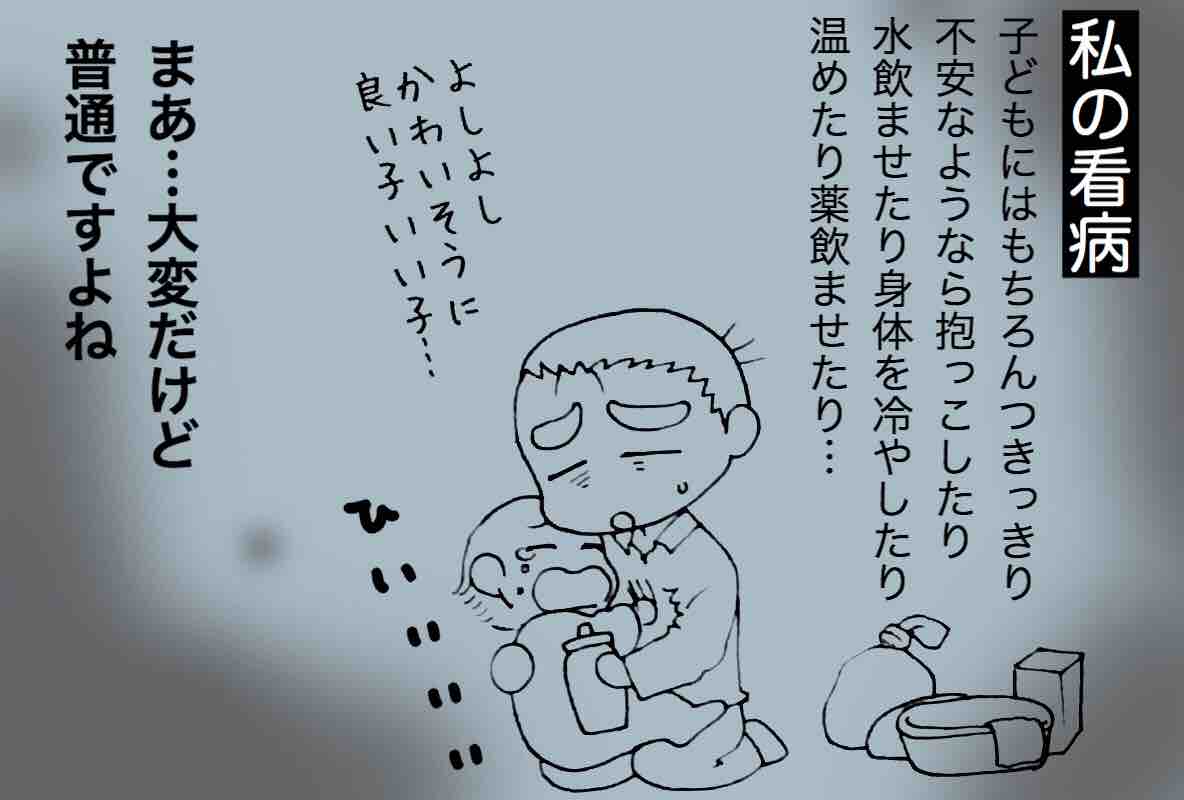 私の看病
子どもにはもちろんつきっきり
不安なようなら抱っこしたり
水飲ませたり身体を冷やしたり
温めたり薬飲ませたり…
よしよし
かわいそうに
良い子いい子…
ひぃいいい
まあ…大変だけど
普通ですよね